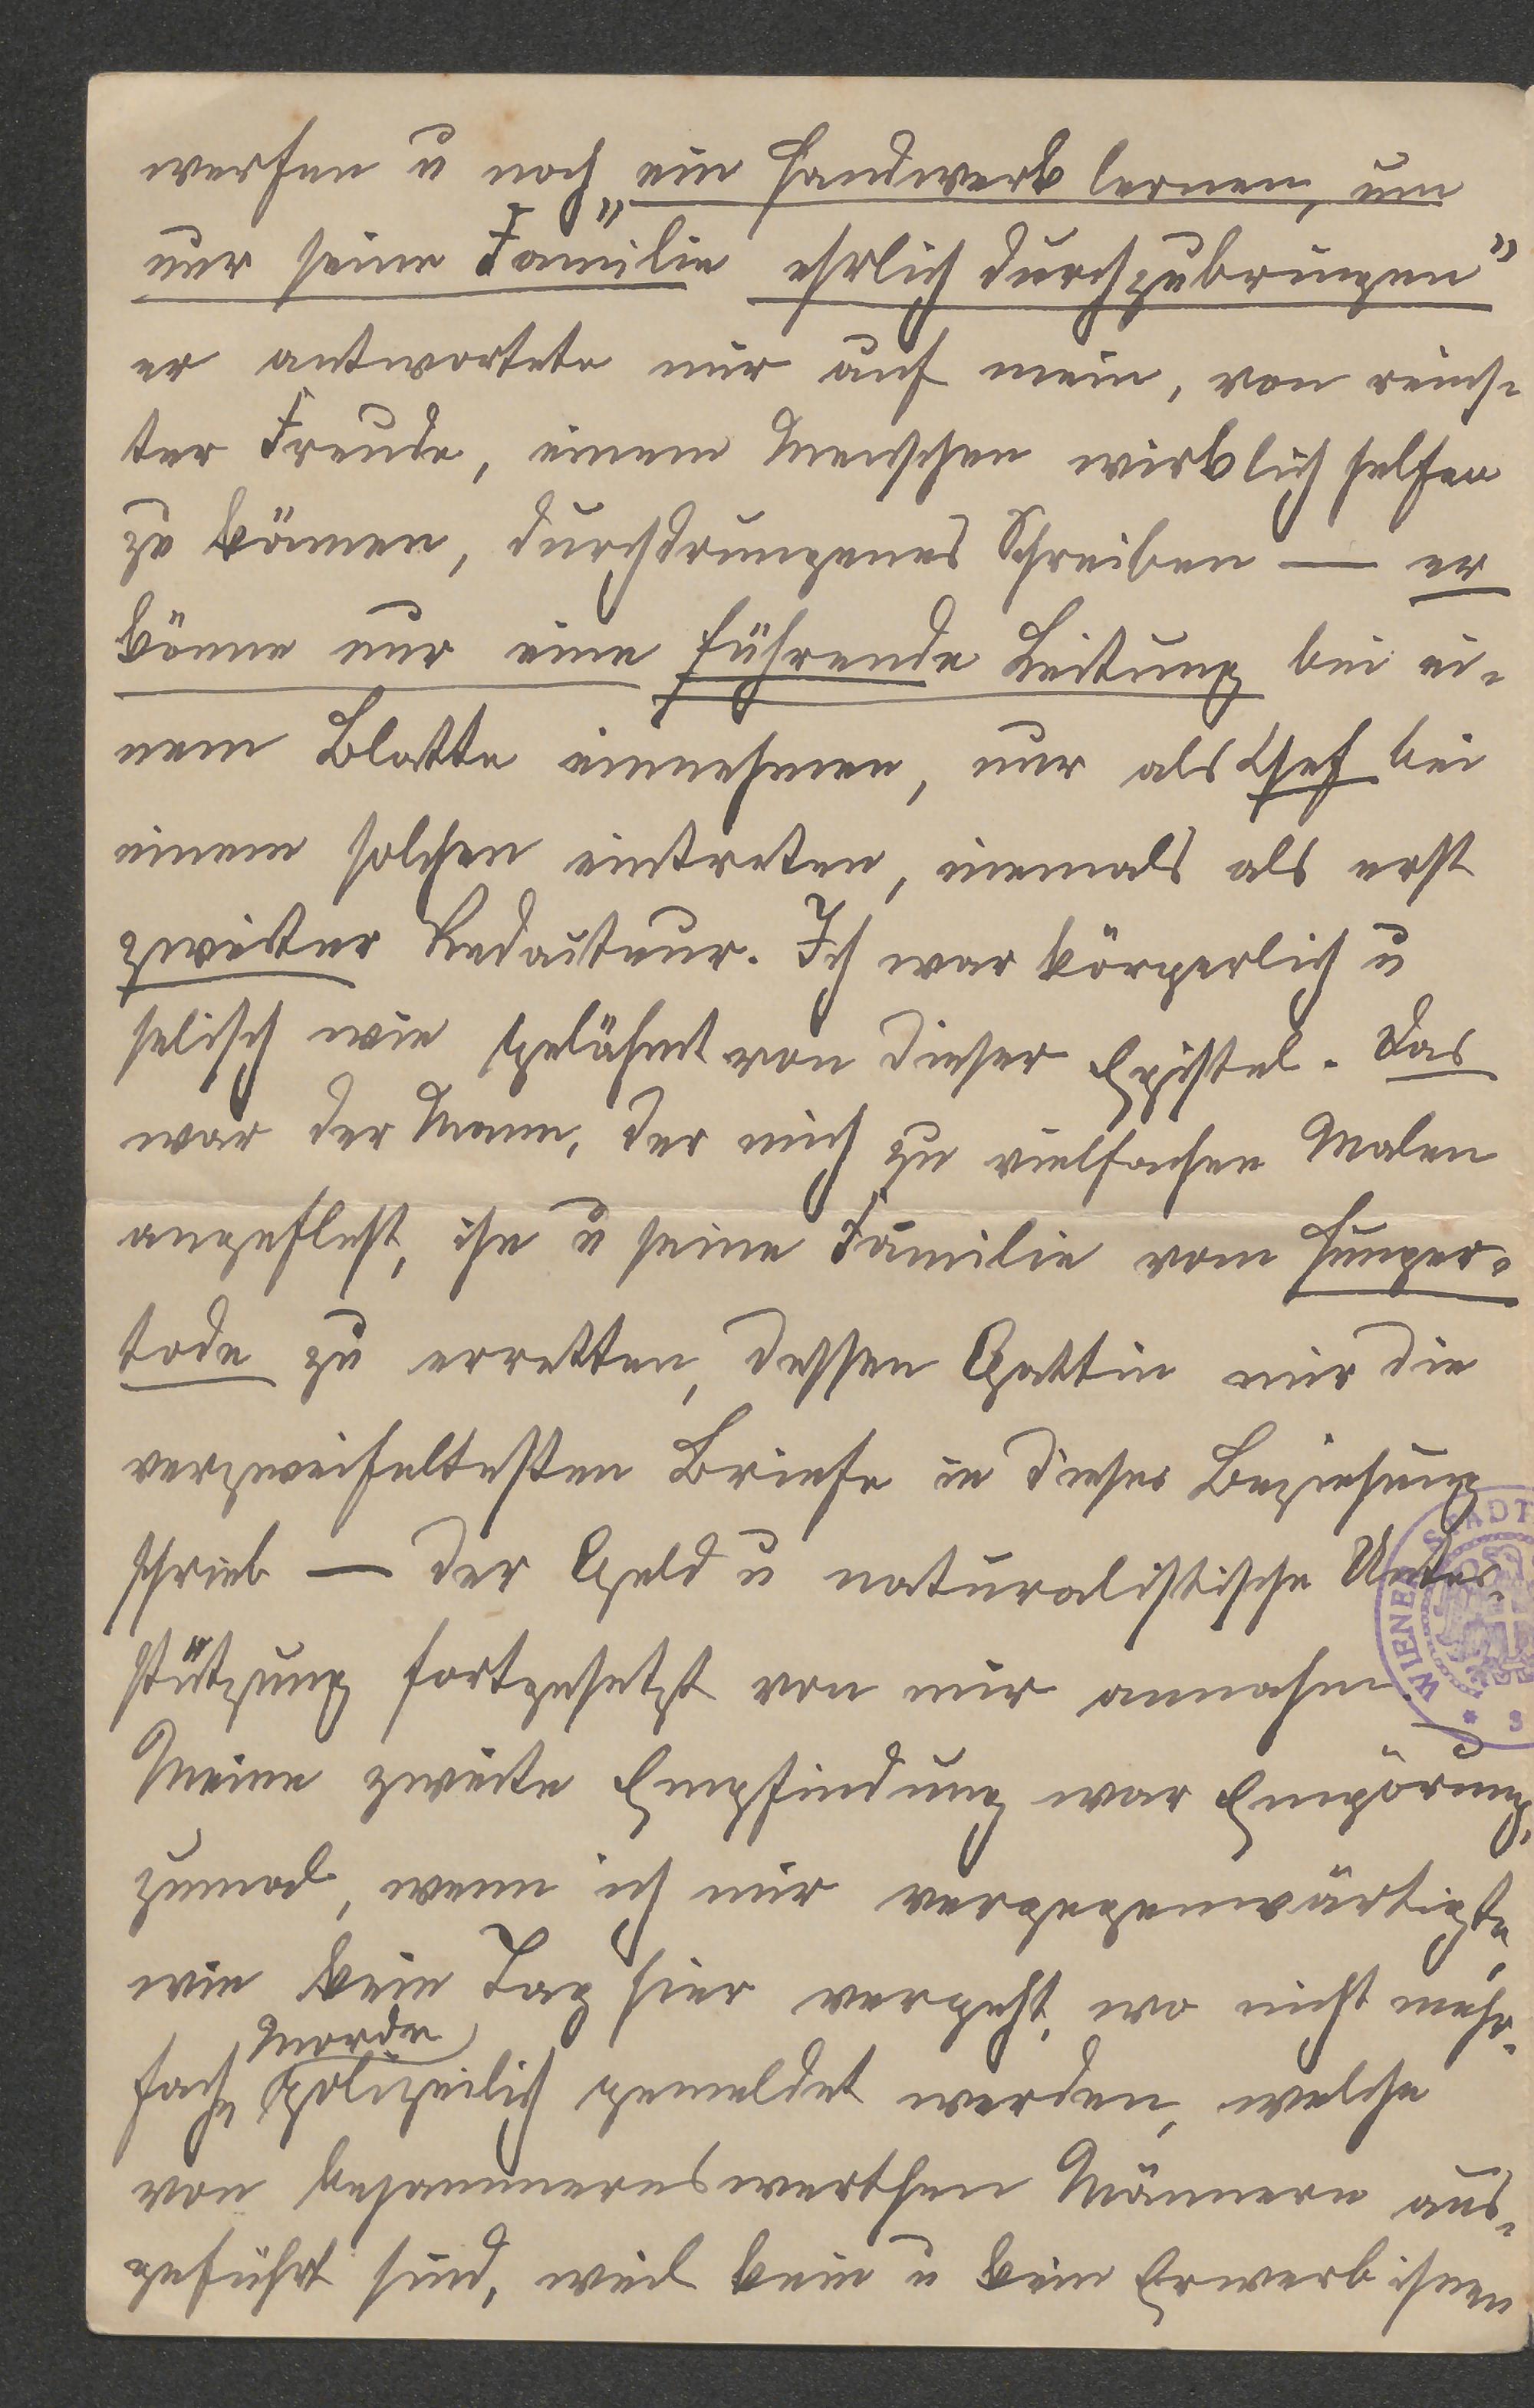 werfen u noch „ein Handwerk lernen, um
nur seine Familie ehrlich durchzubringen"
er antwortete mir auf mein, von reins-
ter Freude, einem Menschen wirklich helfen
zu können, durchdrungenes Schreiben — er
könne nur eine führende Leitung bei ei-
nem Blatte einnehmen, nur als Chef bei
einem solchen eintreten, niemals als erst
zweiter Redacteur. Ich war körperlich u
selisch wie gelähmt von dieser Epistel. Das
war der Mann, der mich zu vielfachen Malen
angefleht, ihn u seine Familie vom Hunger-
tode zu erretten, dessen Gattin mir die
verzweifeltesten Briefe in dieser Beziehung
schrieb — der Geld u naturalistische Unter-
stützung fortgesetzt von mir annahm.
Meine zweite Empfindung war Empörung,
zumal, wenn ich mir vergegenwärtigte,
wie kein Tag hier vergeht, wo nicht mehr-
Morde
fach polizeilich gemeldet werden, welche
von bejammernswerthen Männern aus-
geführt sind, weil kein u kein Erwerb ihnen
WIENER STADT